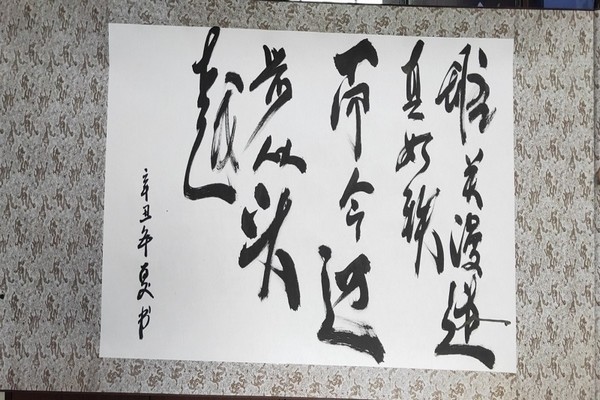 雄关漫道
真如鐵
而今迈
步从头
越
辛丑年夏书